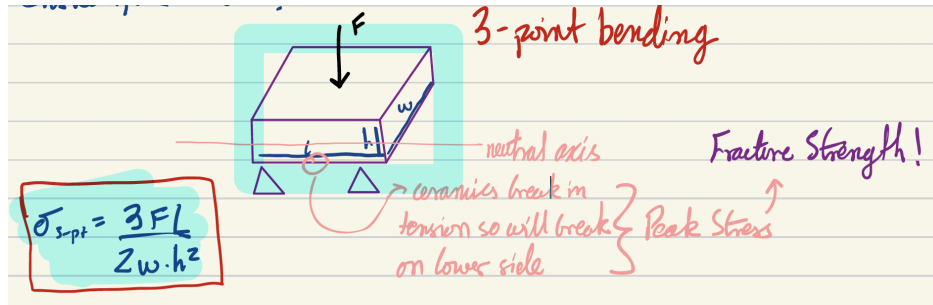 F
3-point bending
w
L h
neutral axis
Fracture Strength!
ceramics break in
tension so will break } Peak Stress
on lower side
σ3-pt = 3FL
2w.h²